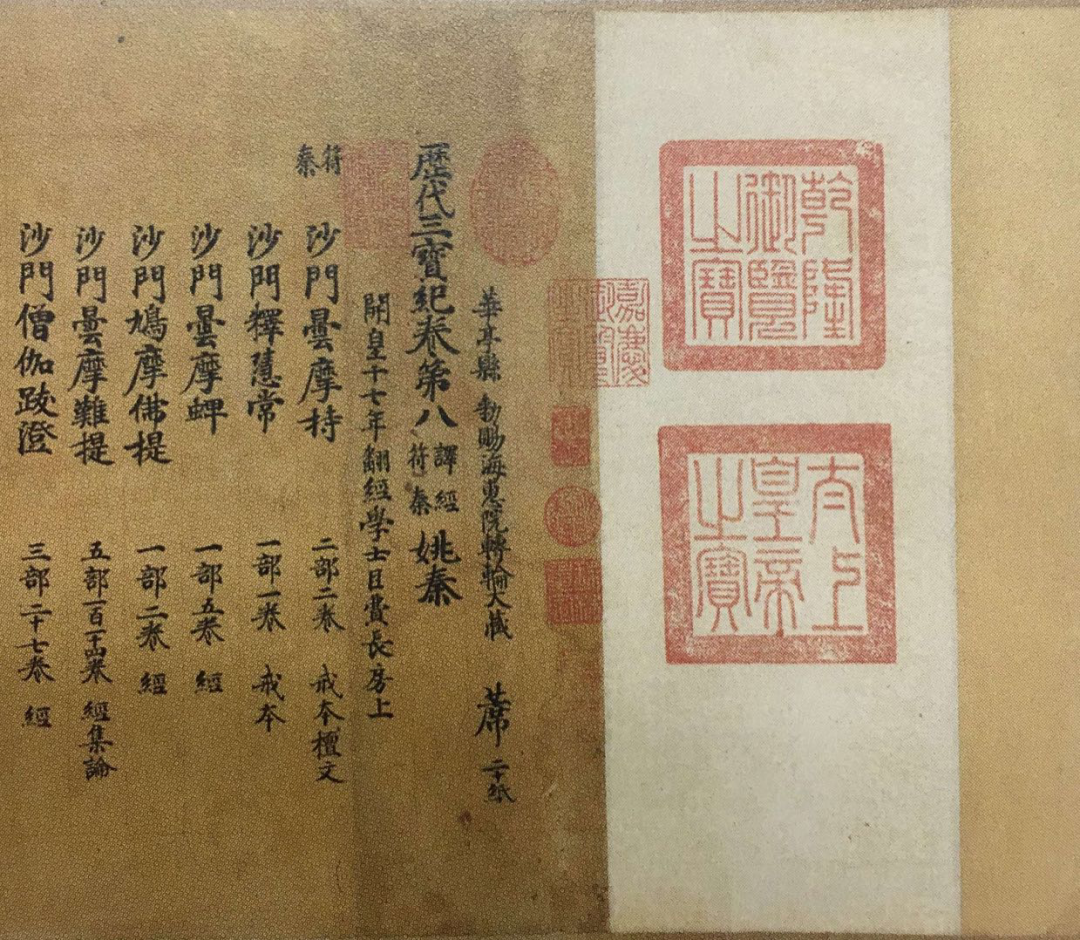 乾隆御覽之寶
太上皇帝之寶
嘉慶御覽之寶
華亭縣 勑賜海惠院轉輪大藏 蓆 二十紙
歷代三寶紀卷第八 譯經 苻秦 姚秦
開皇十七年翻經學士臣費長房上
苻秦
沙門曇摩持 二部二卷 戒本檀文
沙門釋慧常 一部一卷 戒本
沙門曇摩蜱 一部五卷 經
沙門鳩摩佛提 一部二卷 經
沙門曇摩難提 五部一百一十四卷 經集論
沙門僧伽跋澄 三部二十七卷 經